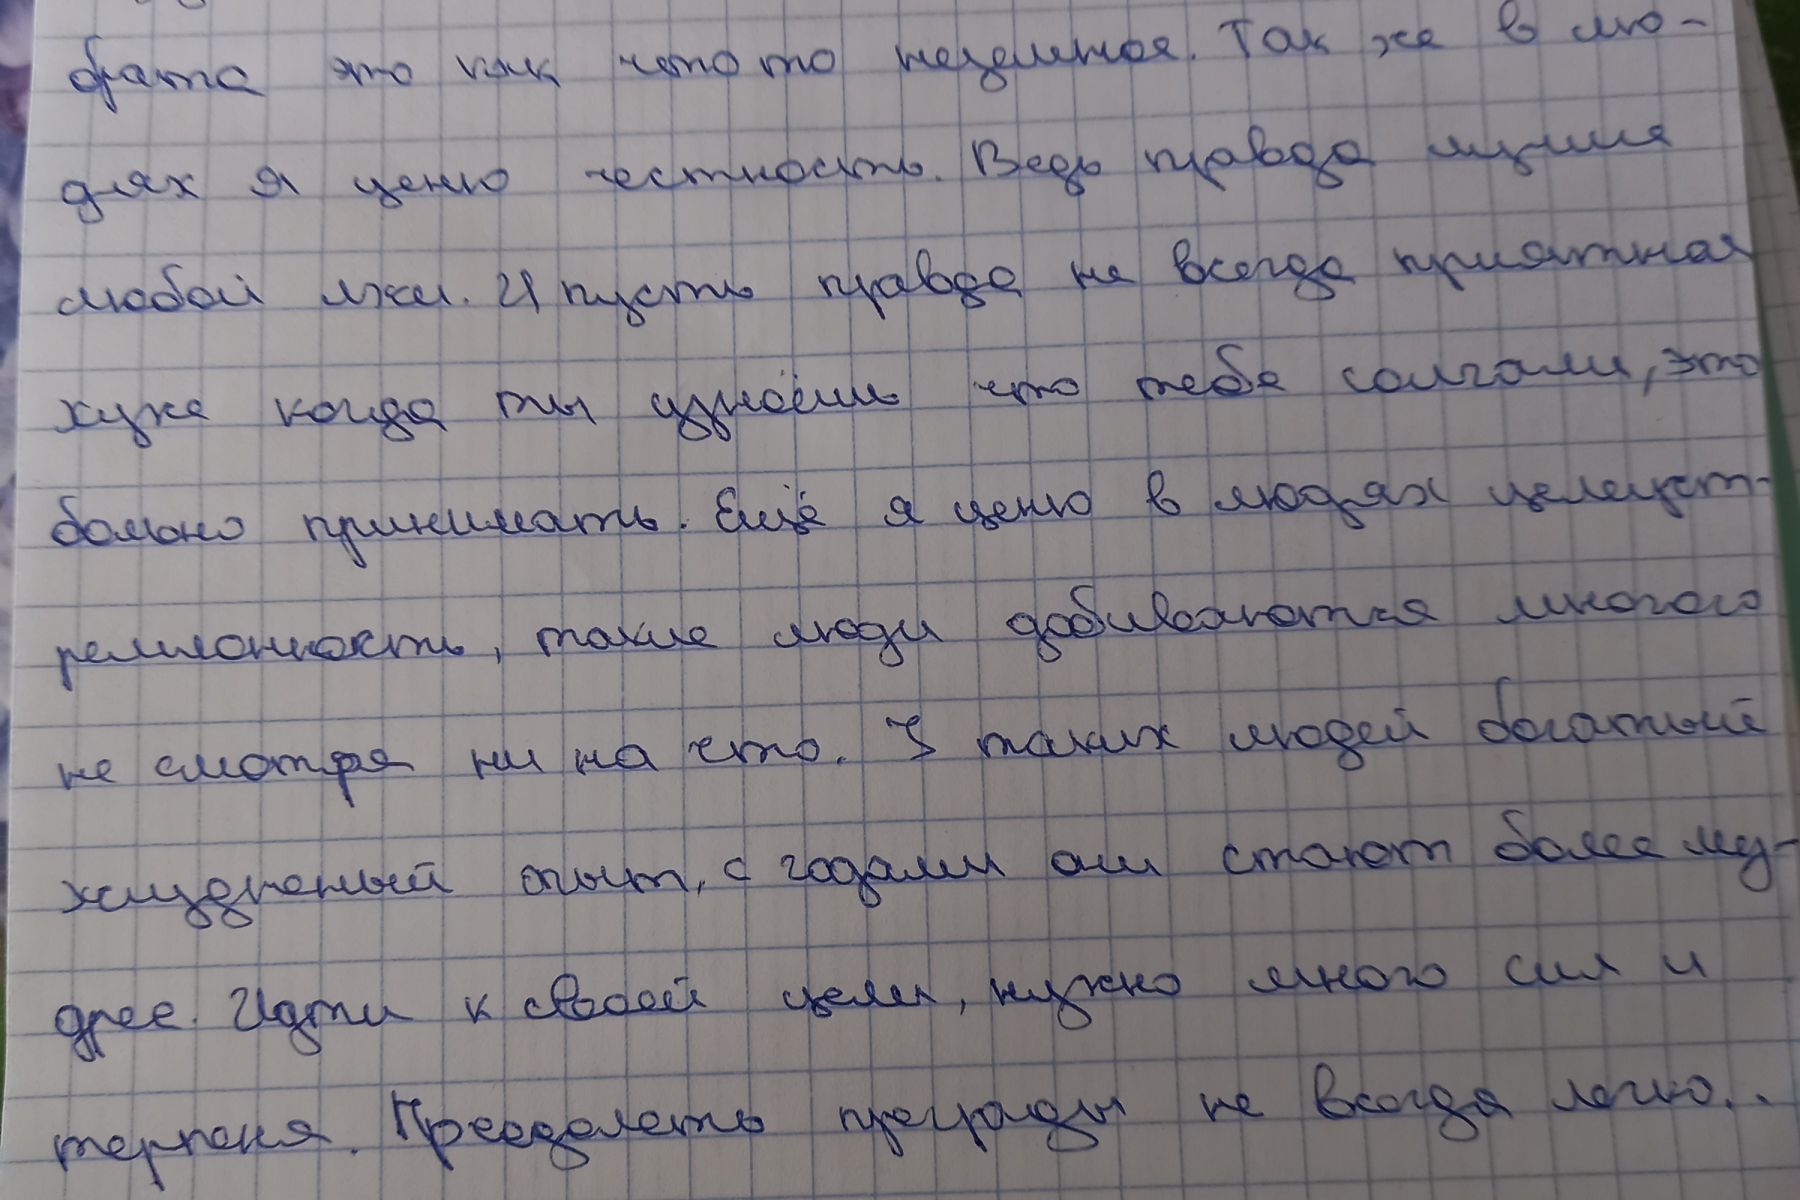 брата это как что то неземное. Так же в лю-
дях я ценю честность. Ведь правда лучше
любой лжи. И пусть правда не всегда приятная
хуже когда ты узнаёшь что тебе солгали, это
больно принимать. Ещё я ценю в людях целеуст-
ремленность, такие люди добиваются многого
не смотря ни на что. У таких людей богатый
жизненый опыт, с годами они стают более му-
дрее. Идти к своей цели, нужно много сил и
терпеня. Преодолеть преграды не всегда легко..